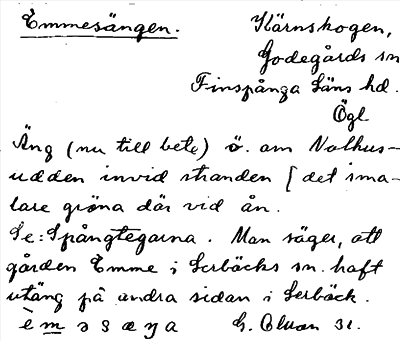 Emmesängen. Kärnskogen,
Godegårds sn
Finspånga läns hd.
Ögl
Äng (nu till bete) ö. om Nolhus-
udden invid stranden [det sma-
lare gröna där vid ån.
Se: Spångtegarna. Man säger, att
gården Emme i Lerbäcks sn. haft
utäng på andra sidan i Lerbäck.
è m ə s æ ŋ a G. 31.